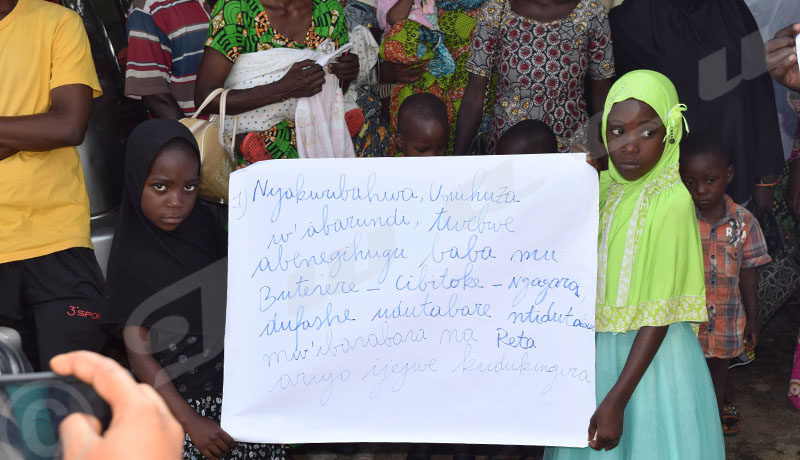 1) Nyakwubahwa, Umuhuza
w'abarundi, twebwe
abenegihugu baba mu
Buterere - Cibitoke - Ngagara,
dufashe udutabare ntidutabe
mw'ibarabara na Reta
ariyo yejwe kudukingira
3" SPORT